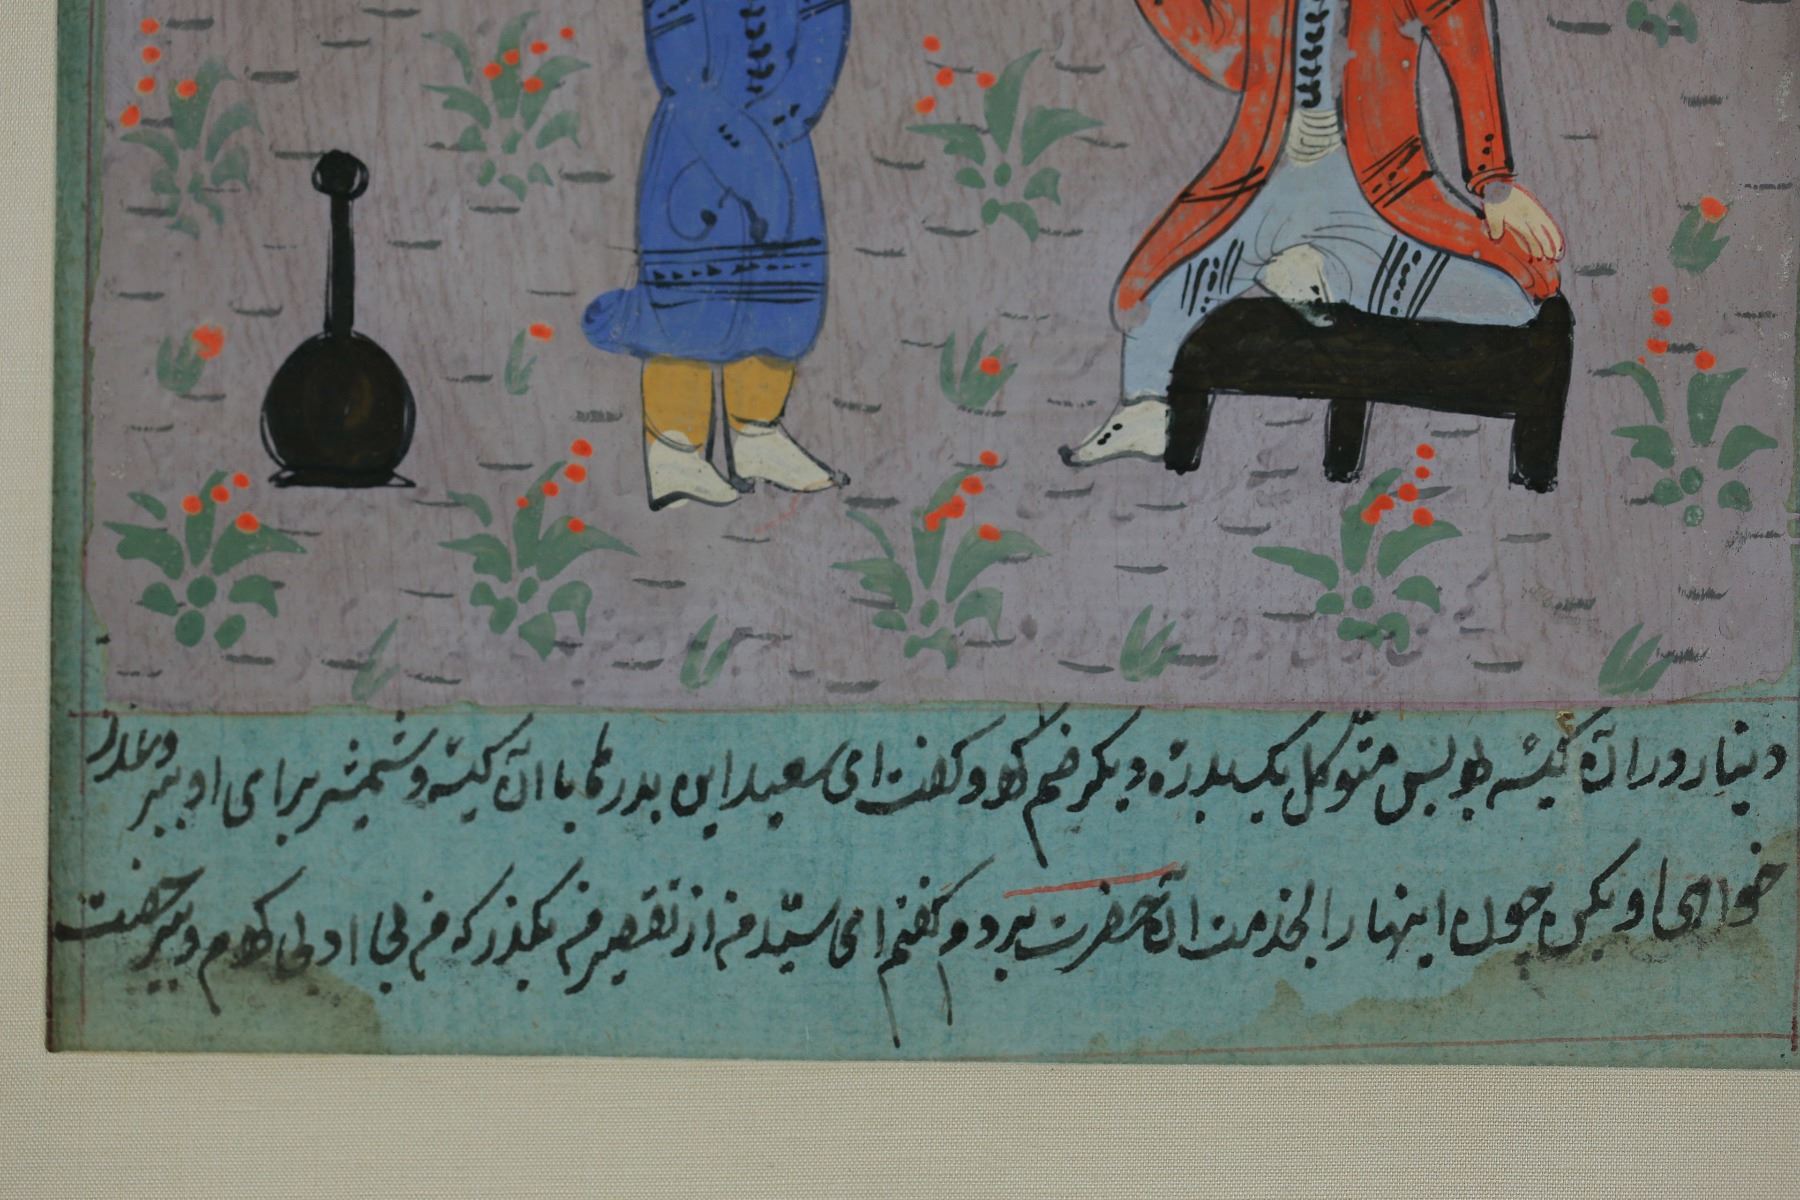 دینار در آن کیسه بود پس متوکل یک بدره دیگر ضم کرد و گفت ای سعید این بدرها با آن کیسه و شمشیر برای او ببر و عذر
خواهی او بکن چون اینها را بخدمت آن حضرت بردم و گفتم ای سید من از تقصیر من بگذر که من بی ادبی کردم و بی رخصت